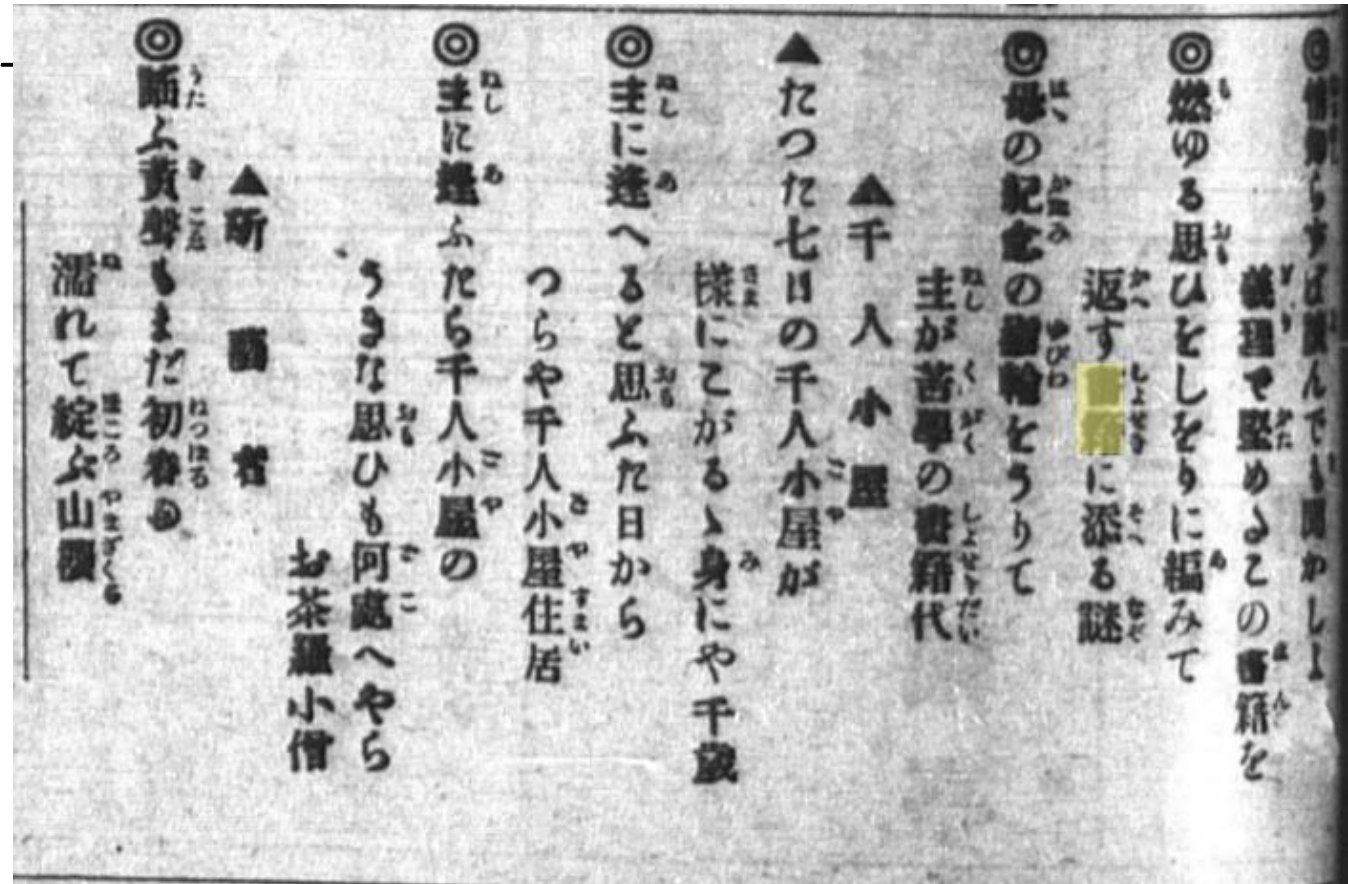 義理で堅めるこの書籍を
◎燃ゆる思ひをしをりに編みて
返す書籍に添る謎
◎母の紀念の指輪をうりて
主が苦學の書籍代
▲千人小屋
▲たつた七日の千人小屋が
様にこがるゝ身にや千歳
◎主に逢へると思ふた日から
つらや千人小屋住居
◎主に逢ふたら千人小屋の
うきな思ひも何處へやら
お茶羅小僧
▲新 聲
◎ふ黄聲もまだ初春の
濡れて綻ぶ山櫻